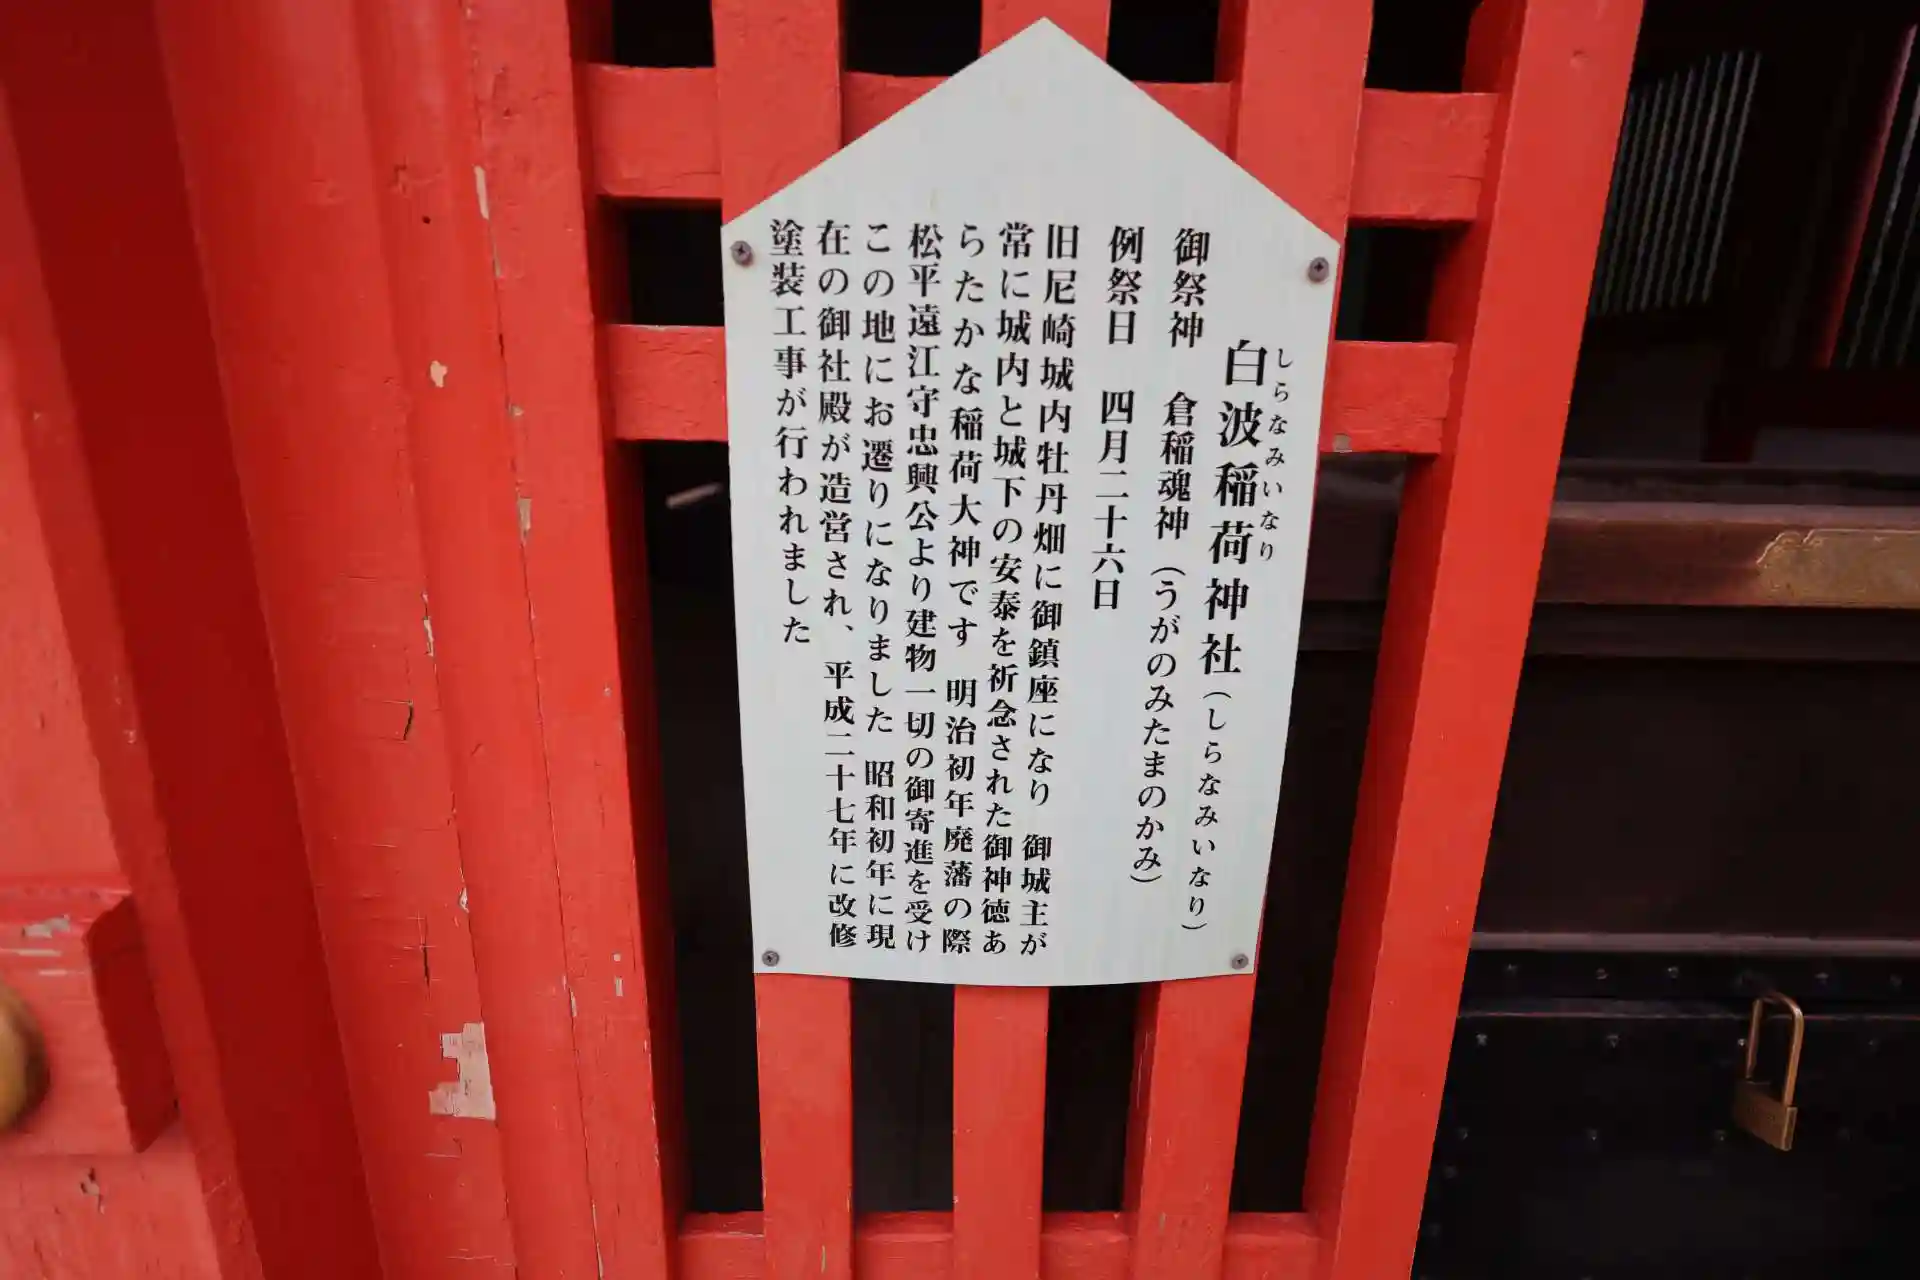 白波稲荷神社（しらなみいなり）
しらなみいなり
御祭神　倉稲魂神（うがのみたまのかみ）
例祭日　四月二十六日
旧尼崎城内牡丹畑に御鎮座になり　御城主が
常に城内と城下の安泰を祈念された御神徳あ
らたかな稲荷大神です　明治初年廃藩の際
松平遠江守忠興公より建物一切の御寄進を受け
この地にお遷りになりました　昭和初年に現
在の御社殿が造営され、平成二十七年に改修
塗装工事が行われました